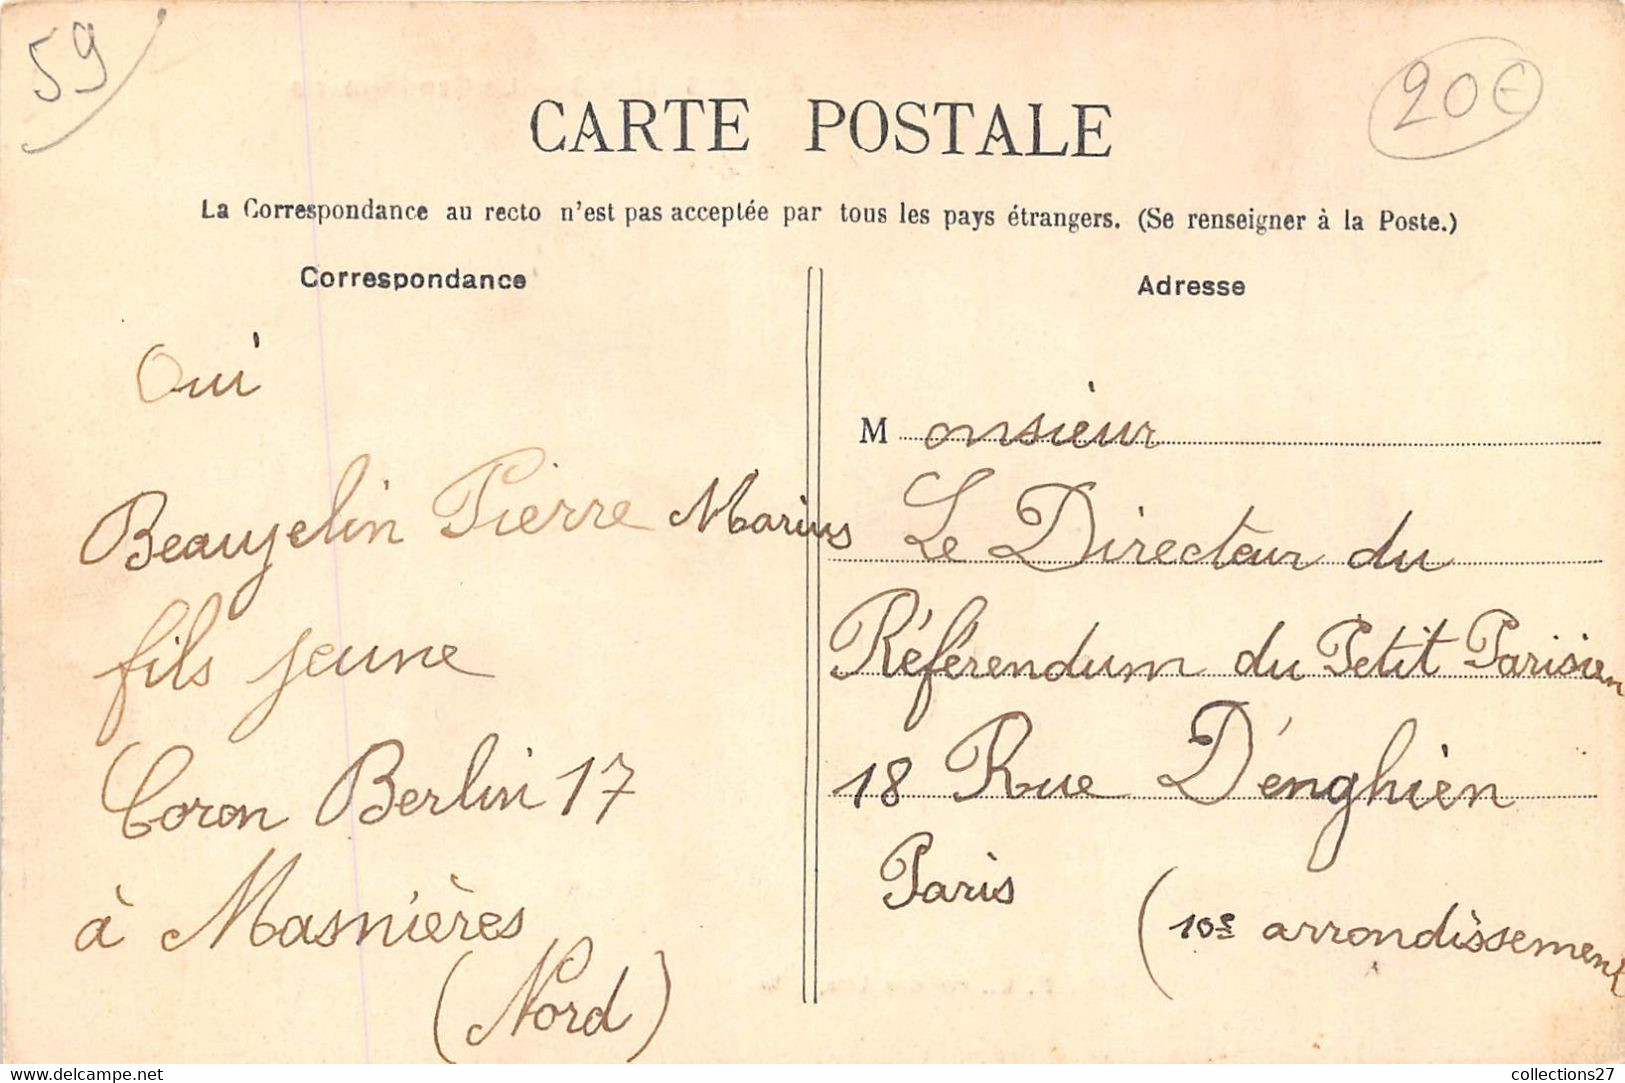 59
20€
CARTE POSTALE
La Correspondance au recto n'est pas acceptée par tous les pays étrangers. (Se renseigner à la Poste.)
Correspondance
Oui
Beaujelin Pierre Marius
fils jeune
Coron Berlin 17
à Masnières
(Nord)
Adresse
Monsieur
Le Directeur du
Référendum du Petit Parisien
18 Rue D'énghien
Paris
(10e arrondissement
www.delcampe.net
collections27